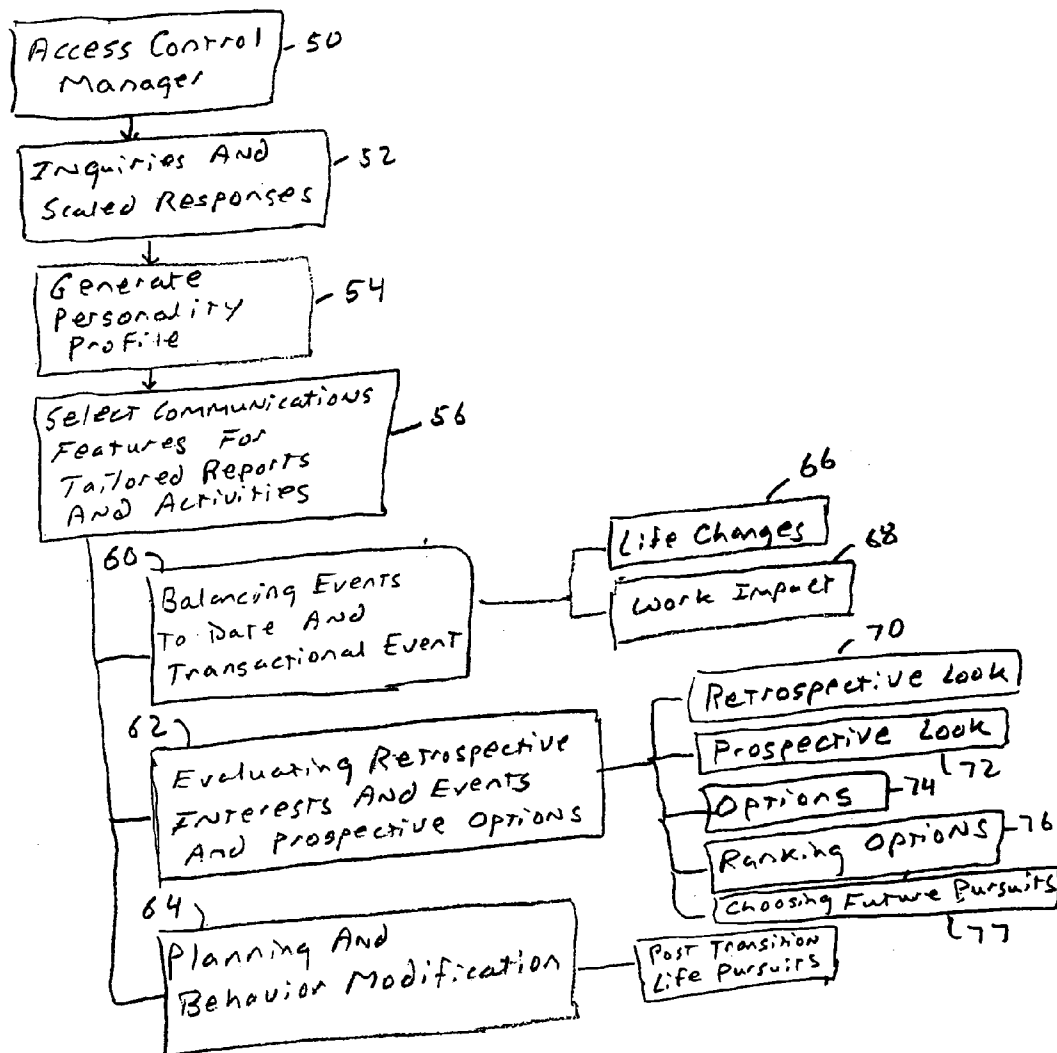 Access Control
Manager
50
Inquiries And
Scaled Responses
52
Generate
Personality
Profile
54
Select Communications
Features For
Tailored Reports
And Activities
56
60
Balancing Events
To Date And
Transactional Event
66
Life Changes
68
Work Impact
62
Evaluating Retrospective
Interests And Events
And Prospective Options
70
Retrospective Look
Prospective Look
72
Options
74
Ranking Options
76
Choosing Future Pursuits
77
64
Planning And
Behavior Modification
Post Transition
Life Pursuits